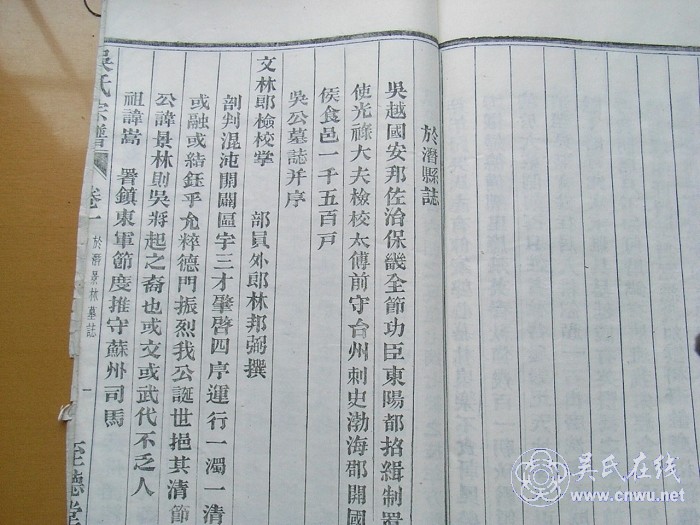 於潛縣誌
吳越國安邦佐治保畿全節功臣東陽都招緝制置
使光祿大夫檢校太傅前守台州刺史渤海郡開國
侯食邑一千五百戸
吳公墓誌并序
文林郎檢校掌 部員外郎林邦弼撰
剖判混沌開闢區宇三才肇啓四序運行一濁一清
或融或結鈺乎允粹德門振烈我公誕世挹其清節
公諱景林則吳將起之裔也或文或武代不乏人
祖諱嵩 署鎮東軍節度推守蘇州司馬
吳氏宗譜 卷一 於潛景林墓誌 一 至德堂
吴氏在线
www.cnwu.net